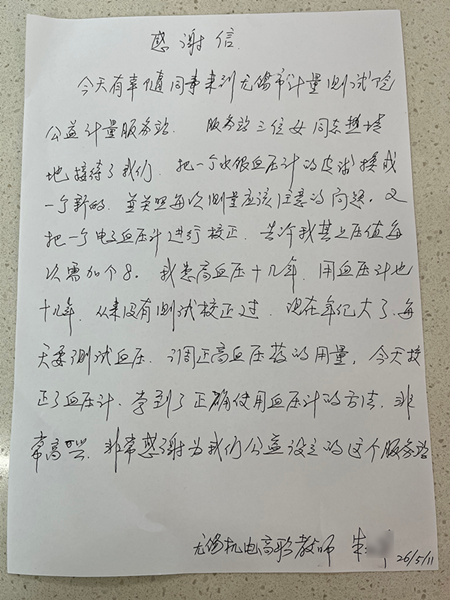 感谢信
今天有幸随同事来到无锡市计量测试院
公益计量服务站. 服务站三位女同志热情
地接待了我们, 把一个水银血压计的皮球换成
一个新的. 并关照每次测量应该注意的问题. 又
把一个电子血压计进行校正. 告诉我其上压值每
次需加个8. 我患高血压十几年, 用血压计也
十几年, 从来没有测试校正过. 现在年纪大了, 每
天要测试血压. 调正高血压药的用量, 今天校
正了血压计. 学到了正确使用血压计的方法. 非
常高兴. 非常感谢为我们公益设立的这个服务站
无锡机电高职教师 朱
26/5/11